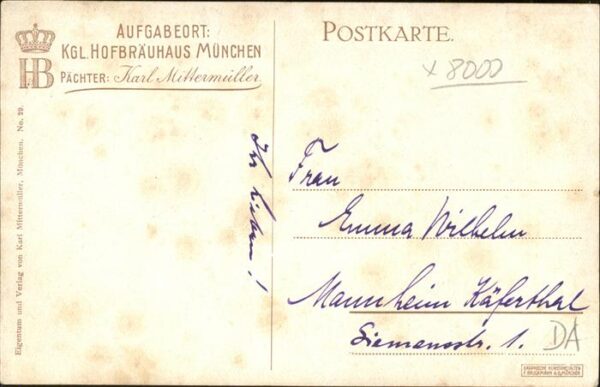 AUFGABEORT:
KGL. HOFBRÄUHAUS MÜNCHEN
HB
PÄCHTER: Karl Mittermüller
POSTKARTE.
x 8000
Eigentum und Verlag von Karl Mittermüller, München. No. 29.
Ihr Lieben!
Frau
Emma Wilhelm
Mannheim Käferthal
Siemensstr. 1.
DA
GRAPHISCHE KUNSTANSTALTEN
F. BRUCKMANN A.G. MÜNCHEN